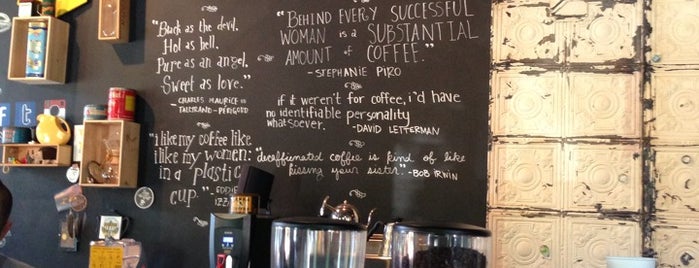 "Black as the devil.
Hot as hell.
Pure as an angel.
Sweet as love."
- CHARLES MAURICE de
TALLYRAND-PÉRIGORD
"BEHIND EVERY SUCCESSFUL
WOMAN is a SUBSTANTIAL
AMOUNT of COFFEE."
- STEPHANIE PIRO
if it weren't for coffee, i'd have
no identifiable personality
whatsoever. -DAVID LETTERMAN
"i like my coffee like
i like my women:
in a plastic
cup."
EDDIE
IZZ
"decaffeinated coffee is kind of like
kissing your sister." -BOB IRWIN